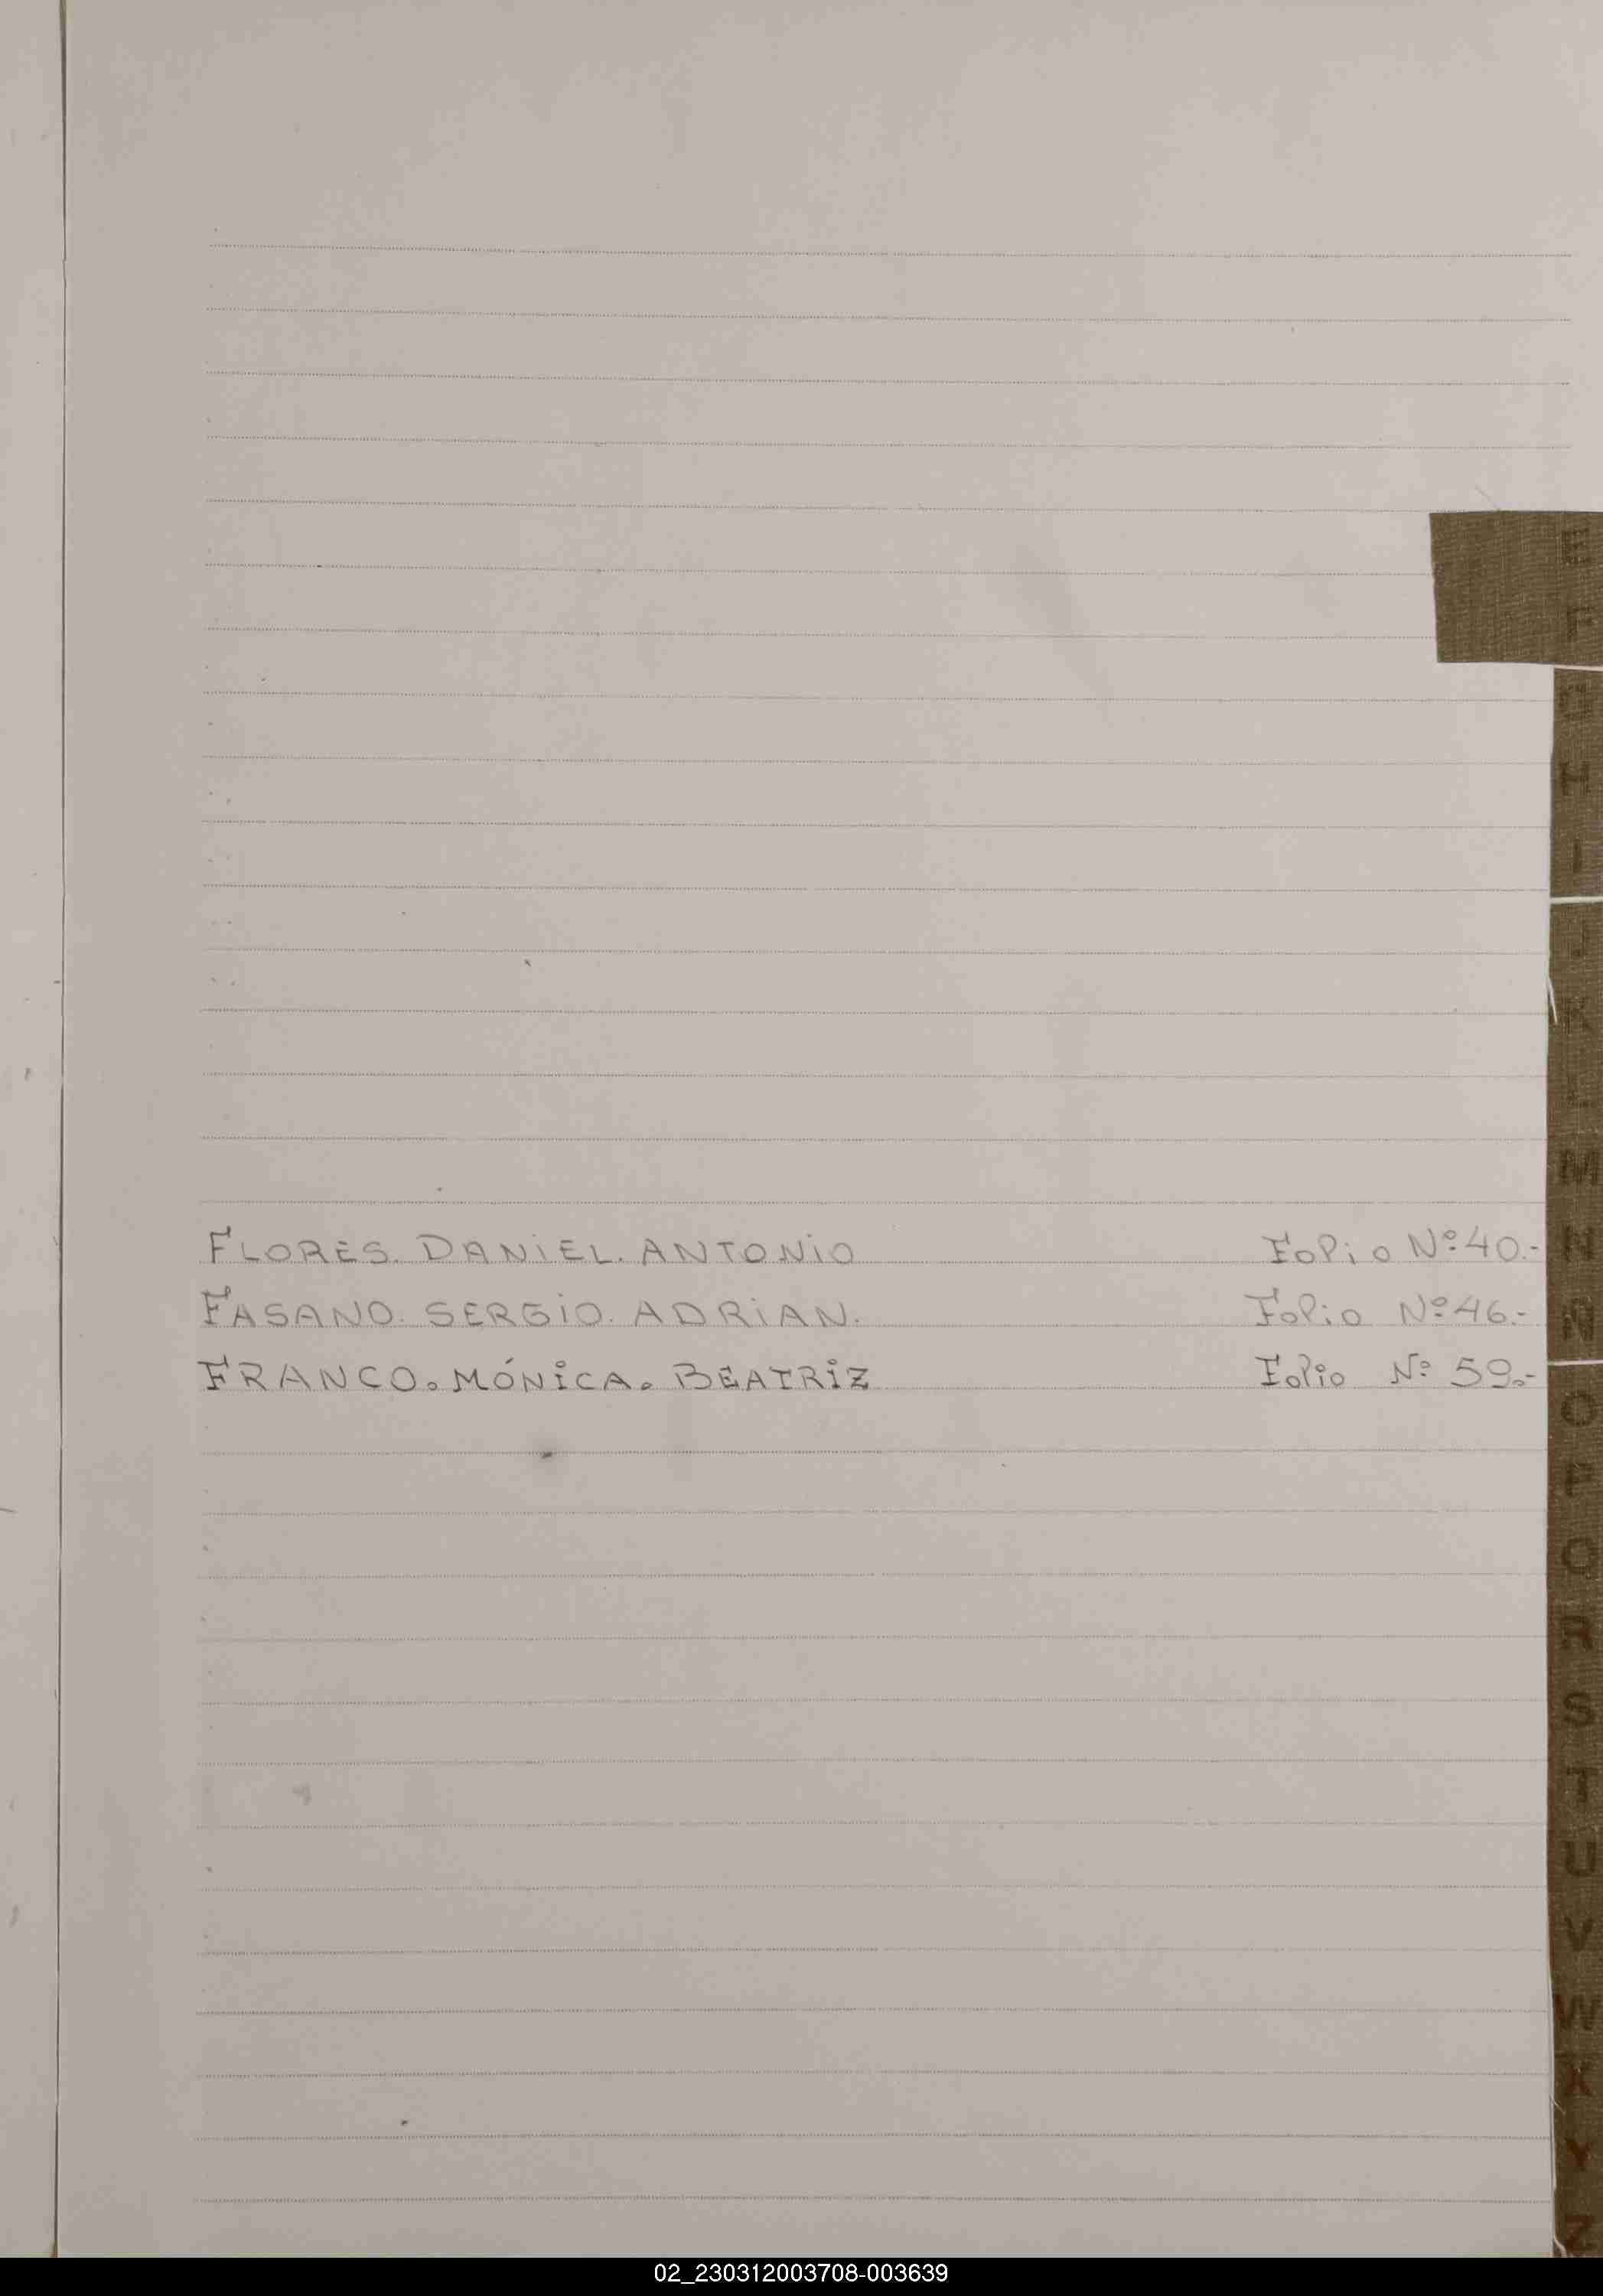 E
F
G
H
I
J
K
L
M
N
Ñ
FLORES. DANiEL. ANTONiO Folio Nº 40.-
FASANO. SERGiO. ADRiAN. Folio Nº 46.-
FRANCO. MÓNiCA. BEATRiZ Folio Nº 59.-
O
P
Q
R
S
T
U
V
W
X
Y
Z
02_230312003708-003639